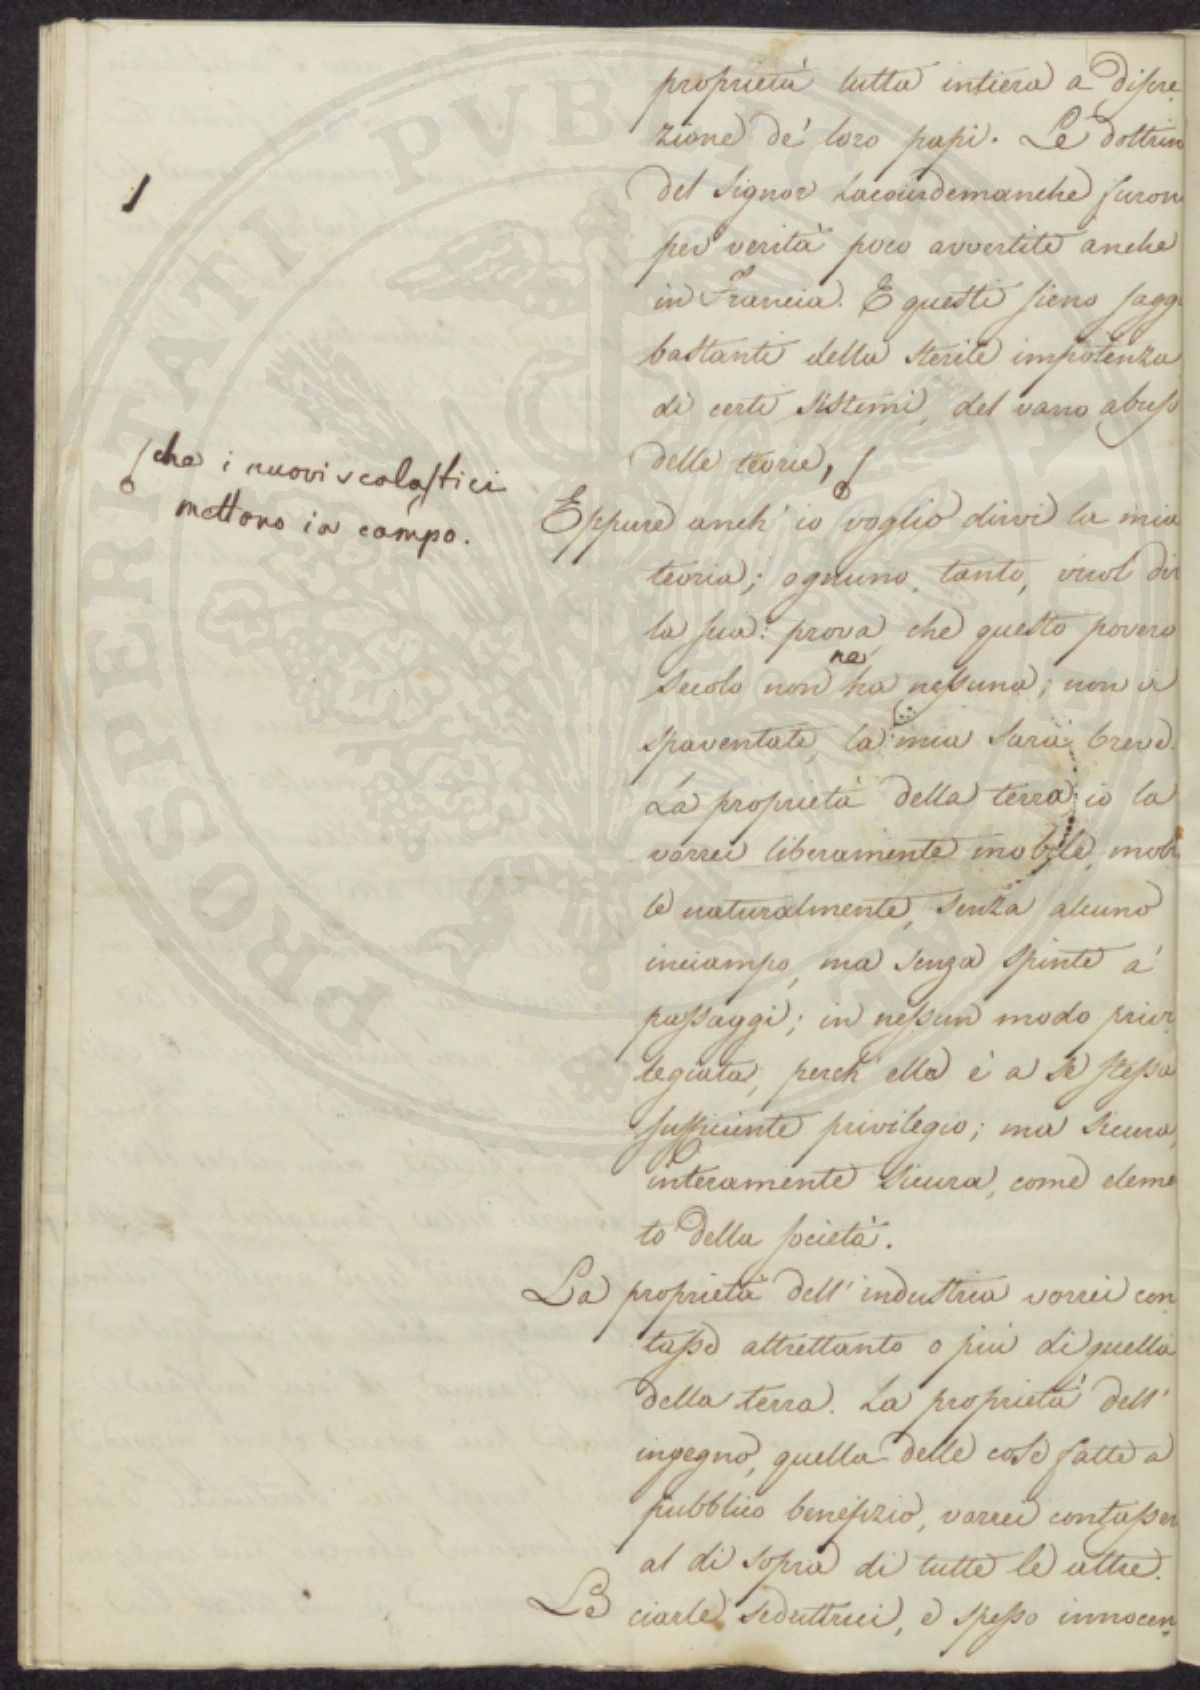 proprietà tutta intiera a discre
zione de' loro papi. Le dottrin
del Signor Lacourdemanche furon
per verità poco avvertite anche
in Francia. E questi sieno sagg
bastanti della sterile impotenza
di certi sistemi, del vano abuso
delle teorie,
che i nuovi scolastici
mettono in campo.
Eppure anch' io voglio dirvi la mia
teoria; ognuno, tanto, vuol dir
la sua: prova, che questo povero
secolo non ne ha nessuna; non vi
spaventate, la mia sarà breve.
La proprietà della terra io la
vorrei liberamente mobile, mobi
le naturalmente, senza alcuno
inciampo, ma senza spinte a'
passaggi; in nessun modo privi
legiata, perch' ella è a se stessa
sufficiente privilegio; ma sicura,
interamente sicura, come eleme
to della società.
La proprietà dell' industria vorrei con
tasse altrettanto o più di quella
della terra. La proprietà dell'
ingegno, quella delle cose fatte a
pubblico benefizio, vorrei contasser
al di sopra di tutte le altre.
Le ciarle seduttrici, e spesso innocen
PROSPERITATI PUBLICAE AUGENDAE